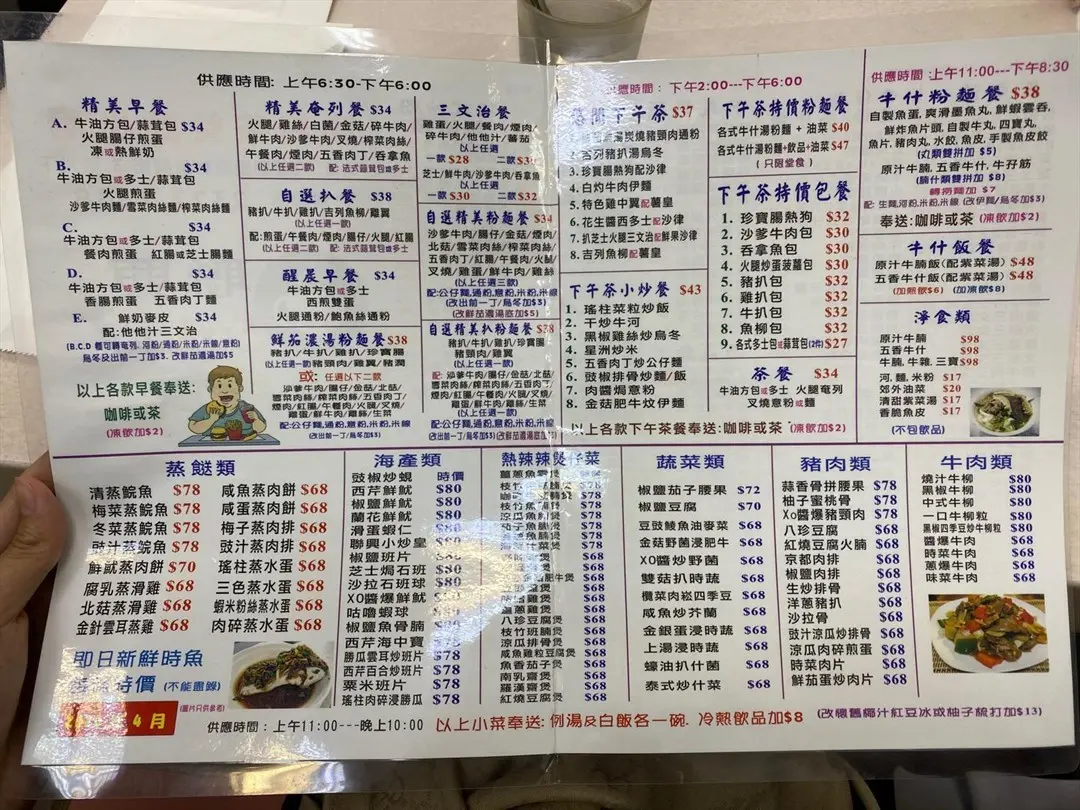 供應時間: 上午6:30-下午6:00
精美早餐
A. 牛油方包/蒜茸包 $34
火腿腸仔煎蛋
凍或熱鮮奶
B. $34
牛油方包或多士/蒜茸包
火腿煎蛋
沙爹牛肉麵/雪菜肉絲麵/榨菜肉絲麵
C. $34
牛油方包或多士/蒜茸包
餐肉煎蛋 紅腸或芝士腸麵
D. $34
牛油方包或多士/蒜茸包
香腸煎蛋 五香肉丁麵
E. 鮮奶麥皮 $34
配:他他汁三文治
以上各款早餐奉送:
咖啡或茶
(凍飲加$2)
精美奄列餐 $34
火腿/雞絲/白菌/金菇/碎牛肉/
鮮牛肉/沙爹牛肉/叉燒/榨菜肉絲/
午餐肉/煙肉/五香肉丁/吞拿魚
(以上任選二款) 配: 法式蒜茸包或多士
自選扒餐 $38
豬扒/牛扒/雞扒/吉列魚柳/雞翼
(以上任選二款)
配:煎蛋/午餐肉/煙肉/腸仔/火腿/紅腸
(以上任選一款) 配: 法式蒜茸包或多士
醒晨早餐 $34
牛油方包或多士
西煎雙蛋
火腿通粉/鮑魚絲通粉
鮮茄濃湯粉麵餐 $38
豬扒/牛扒/雞扒/珍寶腸
(以上任選一款) 豬頸肉/雞翼/豬潤
或: 任選以下二款
沙爹牛肉/腸仔/金菇/北菇/
雪菜肉絲/榨菜肉絲/五香肉丁/
煙肉/紅腸/午餐肉/火腿/叉燒/
雞蛋/鮮牛肉/雞絲/生菜
配:公仔麵,通粉,意粉,米粉,米線
(改出前一丁/烏冬加$3)
三文治餐
雞蛋/火腿/餐肉/煙肉/
碎牛肉/他他汁/蕃茄
以上任選
一款 $28 二款
芝士/鮮牛肉/沙爹牛肉/吞拿魚
以上任選
一款 $30 二款 $32
自選精美粉麵餐 $34
沙爹牛肉/腸仔/金菇/煙肉/
北菇/雪菜肉絲/榨菜肉絲/
五香肉丁/紅腸/午餐肉/火腿/
叉燒/雞蛋/鮮牛肉/雞絲
(以上任選三款)
配:公仔麵,通粉,意粉,米粉,米線
(改出前一丁/烏冬加$3)
(改鮮茄濃湯底加$5)
自選精美扒粉麵餐 $38
豬扒/牛扒/雞扒/珍寶腸
豬頸肉/雞翼
(以上任選一款)
配: 沙爹牛肉/腸仔/金菇/北菇/
雪菜肉絲/榨菜肉絲/五香肉丁/
煙肉/紅腸/午餐肉/火腿/叉燒/
雞蛋/鮮牛肉/雞絲/生菜
(以上任選一款)
配:公仔麵,通粉,意粉,米粉,米線
(改出前一丁/烏冬加$3) (改鮮茄濃湯加$5)
供應時間: 下午2:00---下午6:00
下午茶 $37
炭燒豬頸肉通粉
吉列豬扒湯烏冬
3. 珍寶腸熱狗配沙律
4. 白灼牛肉伊麵
5. 特色雞中翼配薯皇
6. 花生醬西多士配沙律
7. 扒芝士火腿三文治配鮮果沙律
8. 吉列魚柳配薯皇
下午茶小炒餐 $43
1. 瑤柱菜粒炒飯
2. 干炒牛河
3. 黑椒雞絲炒烏冬
4. 星洲炒米
5. 五香肉丁炒公仔麵
6. 豉椒排骨炒麵/飯
7. 肉醬焗意粉
8. 金菇肥牛炆伊麵
以上各款下午茶餐奉送:咖啡或茶 (凍飲加$2)
下午茶特價粉麵餐
各式牛什湯粉麵 + 油菜 $40
各式牛什湯粉麵+飲品+油菜 $47
( 只限堂食 )
下午茶特價包餐
1. 珍寶腸熱狗 $32
2. 沙爹牛肉包 $30
3. 吞拿魚包 $30
4. 火腿炒蛋菠蘿包 $30
5. 豬扒包 $32
6. 雞扒包 $32
7. 牛扒包 $32
8. 魚柳包 $32
9. 各式多士包或蒜茸包(2件) $27
茶餐 $34
牛油方包/多士 火腿奄列
叉燒意粉或麵
供應時間 :上午11:00---下午8:30
牛什粉麵餐 $38
自製魚蛋, 爽滑墨魚丸, 鮮蝦雲吞,
鮮炸魚片頭, 自製牛丸, 四寶丸,
魚片, 豬肉丸, 水餃, 魚皮, 手製魚皮餃
(丸類雙拼加 $5)
原汁牛腩, 五香牛什, 牛孖筋
(腩什類雙拼加 $8)
轉撈麵加 $7
配: 生麵,河粉,米粉,米線 (改伊麵/烏冬加$3)
奉送:咖啡或茶 (凍飲加$2)
牛什飯餐
原汁牛腩飯(配紫菜湯) $48
五香牛什飯(配紫菜湯) $48
(加煎飲$6) (加凍飲$8)
淨食類
原汁牛腩 $98
五香牛什 $98
牛腩, 牛雜, 三寶 $98
河, 麵, 米粉 $17
郊外油菜 $20
清甜紫菜湯 $17
香脆魚皮 $17
(不包飲品)
蒸餸類
清蒸鯇魚 $78 咸魚蒸肉餅 $68
梅菜蒸鯇魚 $78 咸蛋蒸肉餅 $68
冬菜蒸鯇魚 $78 梅子蒸肉排 $68
豉汁蒸鯇魚 $78 豉汁蒸肉排 $68
鮮魷蒸肉餅 $70 瑤柱蒸水蛋 $68
腐乳蒸滑雞 $68 三色蒸水蛋 $68
北菇蒸滑雞 $68 蝦米粉絲蒸水蛋 $68
金針雲耳蒸雞 $68 肉碎蒸水蛋 $68
即日新鮮時魚
特價 (不能圍餸)
(圖片只供參考)
4 月
海產類
豉椒炒蜆 時價
西芹鮮魷 $80
椒鹽鮮魷 $80
蘭花鮮魷 $80
滑蛋蝦仁 $80
聯興小炒皇 $80
椒鹽班片 $80
芝士焗石班 $80
沙拉石班球 $80
XO醬爆鮮魷 $80
咕嚕蝦球 $80
椒鹽魚骨腩 $78
西芹海中寶 $78
勝瓜雲耳炒班片 $78
西芹百合炒班片 $78
粟米班片 $78
瑤柱肉碎浸勝瓜 $78
熱辣辣煲仔菜
八珍豆腐煲 $68
枝竹班腩煲 $68
涼瓜排骨煲 $68
咸魚雞粒豆腐煲 $68
魚香茄子煲 $68
南乳齋煲 $68
羅漢齋煲 $68
紅燒豆腐煲 $68
蔬菜類
椒鹽茄子腰果 $72
椒鹽豆腐 $70
豆豉鯪魚油麥菜 $68
金菇野菌浸肥牛 $68
XO醬炒野菌 $68
雙菇扒時蔬 $68
欖菜肉崧四季豆 $68
咸魚炒芥蘭 $68
金銀蛋浸時蔬 $68
上湯浸時蔬 $68
蠔油扒什菌 $68
泰式炒什菜 $68
豬肉類
蒜香骨拼腰果 $78
柚子蜜桃骨 $78
Xo醬爆豬頸肉 $78
八珍豆腐 $68
紅燒豆腐火腩 $68
京都肉排 $68
椒鹽肉排 $68
生炒排骨 $68
洋蔥豬扒 $68
沙拉骨 $68
豉汁涼瓜炒排骨 $68
涼瓜肉碎煎蛋 $68
時菜肉片 $68
鮮茄蛋炒肉片 $68
牛肉類
燒汁牛柳 $80
黑椒牛柳 $80
中式牛柳 $80
一口牛柳粒 $80
黑椒四季豆炒牛柳粒 $80
醬爆牛肉 $68
時菜牛肉 $68
蔥爆牛肉 $68
味菜牛肉 $68
供應時間 : 上午11:00---晚上10:00 以上小菜奉送: 例湯及白飯各一碗. 冷熱飲品加$8 (改懷舊椰汁紅豆冰或柚子梳打加$13)